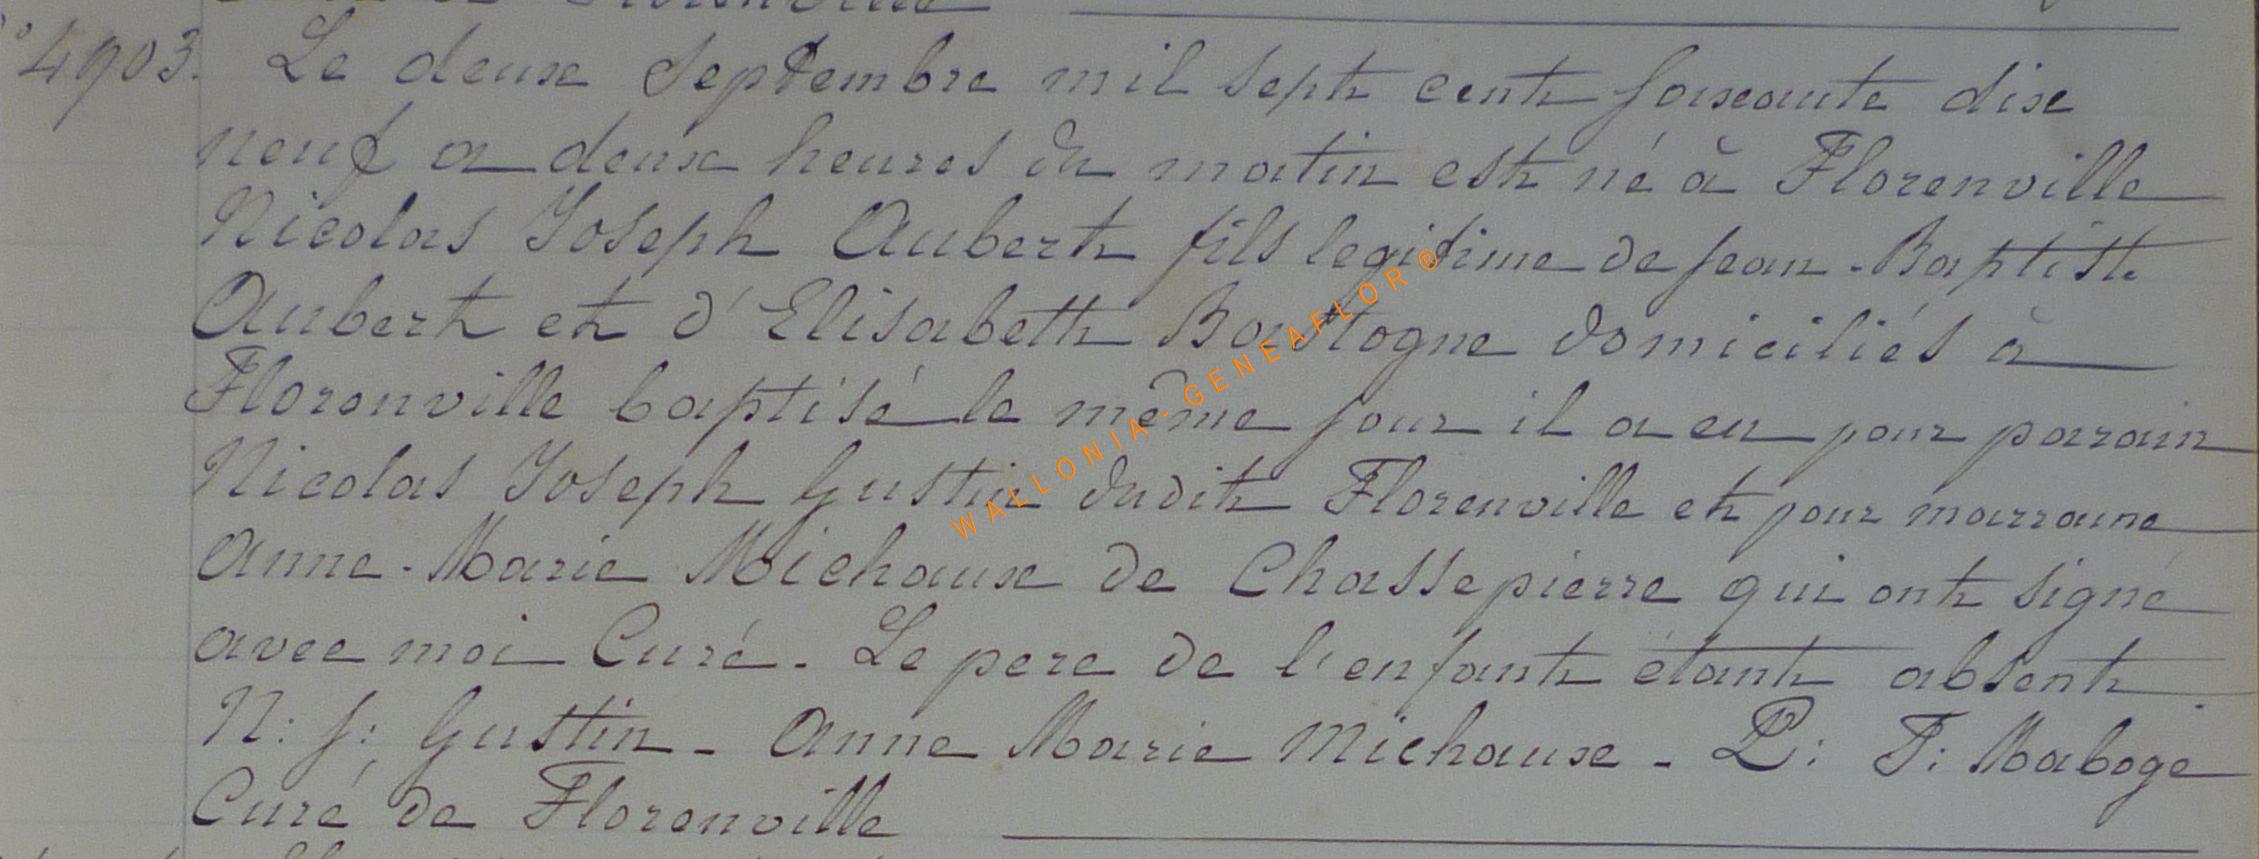 4903. Le deux septembre mil sept cent soixante dix
neuf a deux heures du matin est né à Florenville
Nicolas Joseph Aubert fils legitime de Jean-Baptiste
Aubert et d'Elisabeth Bastogne domiciliés à
Florenville baptisé le même jour il a eu pour parain
Nicolas Joseph Gustin dudit Florenville et pour marraine
Anne-Marie Michaux de Chassepierre qui ont signé
avec moi Curé. Le pere de l'enfant étant absent
N: J: Gustin - Anne Marie Michaux - P: F: Maboge
Curé de Florenville
WALLONIA - GENEAFLOR ®